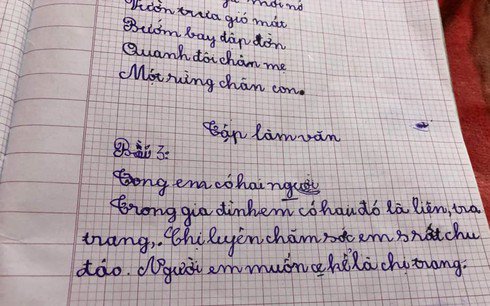 mới nở
Vườn trưa gió mát
Bướm bay dập dờn
Quanh đôi chân mẹ
Một rừng chân con.
Tập làm văn
Bài 3:
Tong em có hai người
Trong gia đình em có hau đó là liên, tra
trang,. Chi luyên chăm sóc em rất chu
đáo. Người em muốn kể là chi trang.